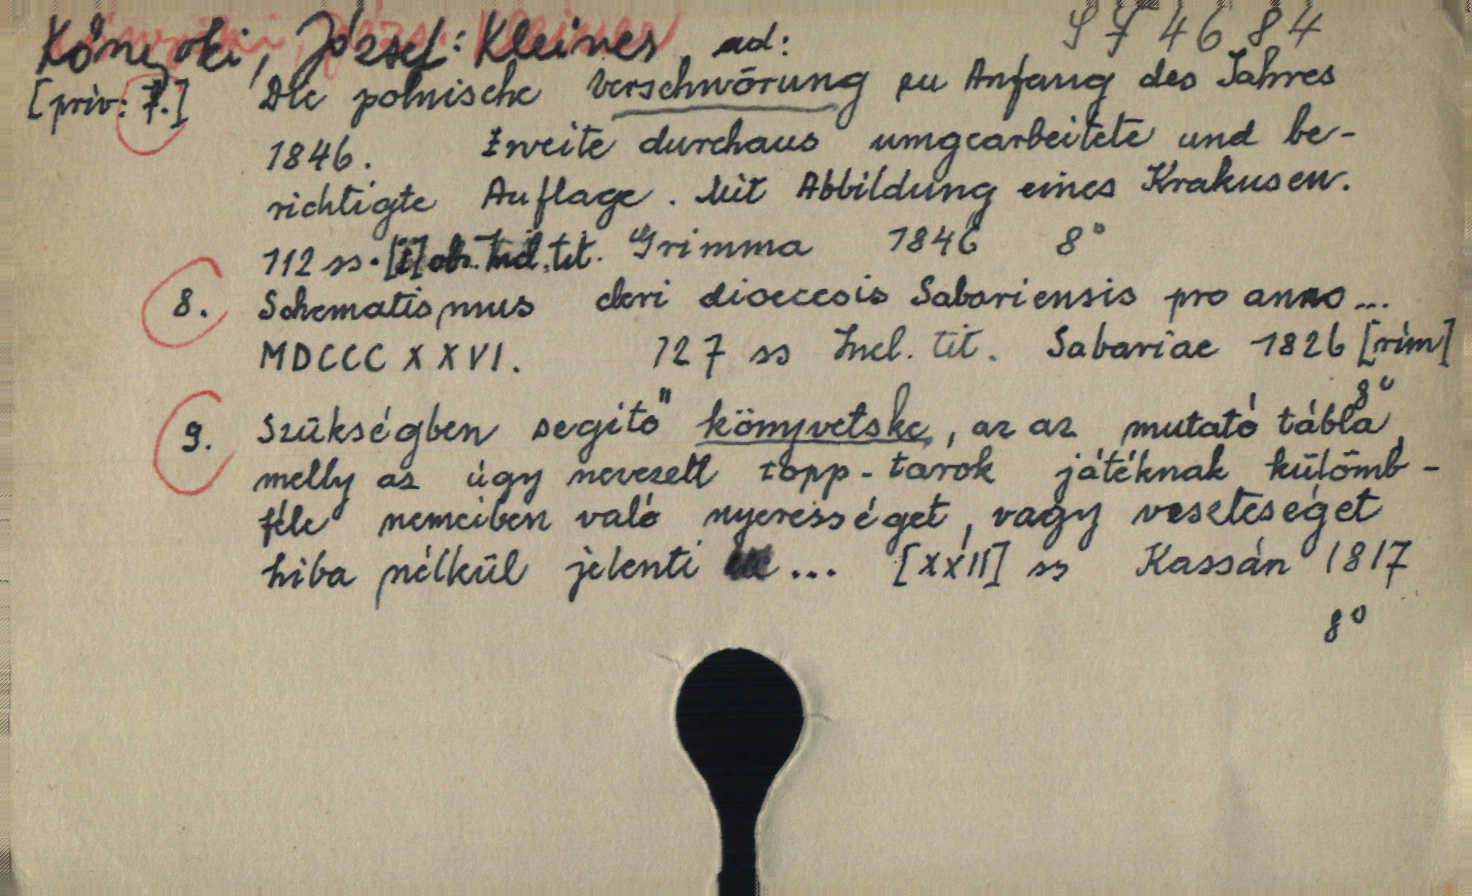 Kőnyoki, József: Kleines ad: 974684
[priv: 7.] Die polnische Verschwörung zu Anfang des Jahres
1846. Zweite durchaus umgearbeitete und be-
richtigte Auflage. Mit Abbildung eines Krakusen.
112 ss. tit. Grimma 1846 8°
8. Schematismus cleri dioecesis Sabariensis pro anno...
MDCCCXXVI. 127 ss Incl. tit. Sabariae 1826 [rim]
8°
9. Szükségben segítő könyvetske, az az mutató tábla,
melly az úgy nevezett topp-tarok játéknak külömb-
féle nemeiben való nyerességet, vagy veszteséget
hiba nélkül jelenti ... [XXII] ss Kassán 1817
8°